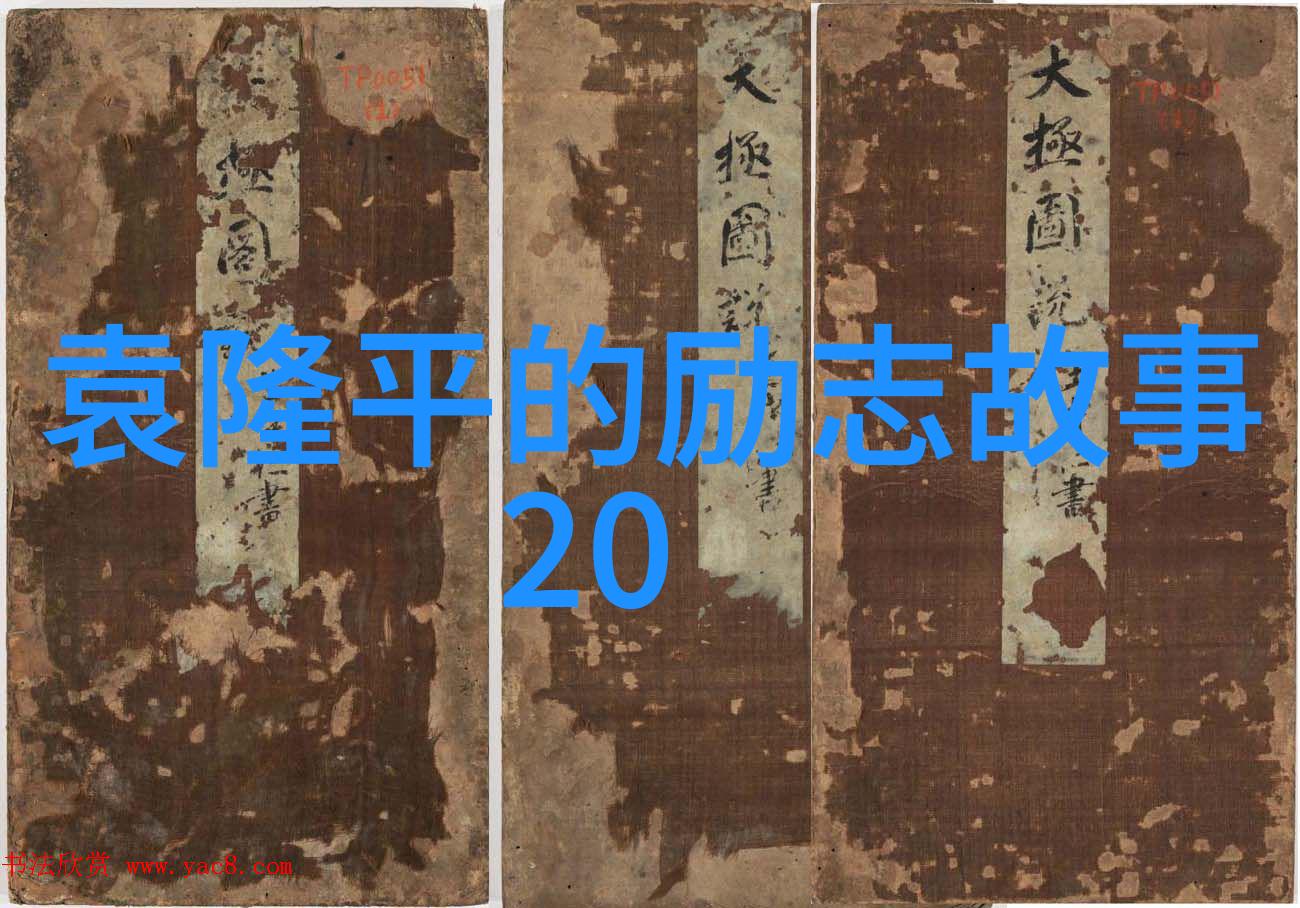 TP0051
(1)
極
圖
書
大
極
圖
說
書
大
極
圖
說
書
袁隆平的励志故事
20
书法欣赏 www.yac8.com